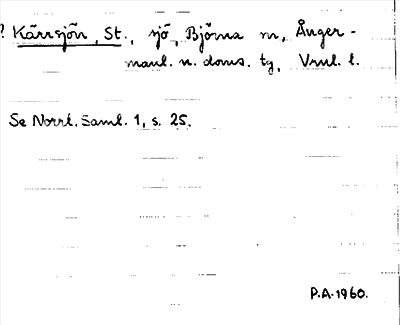 ? Kärrsjön, St., sjö, Björna sn, Ånger-
manl. n. doms. tg, Vnl. l.
Se Norrl. Saml. 1, s. 25.
P.A. 1960.